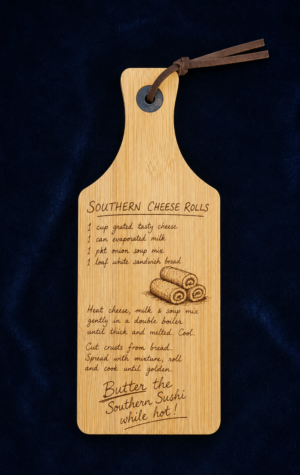 SOUTHERN CHEESE ROLLS
1 cup grated tasty cheese
1 can evaporated milk
1 pkt onion soup mix
1 loaf white sandwich bread
Heat cheese, milk & soup mix
gently in a double boiler
until thick and melted. Cool.
Cut crusts from bread.
Spread with mixture, roll
and cook until golden.
Butter the
Southern Sushi
while hot!